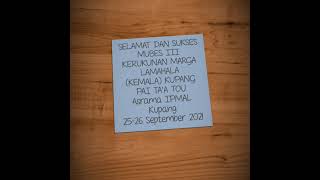 SELAMAT DAN SUKSES
MUBES III
KERUKUNAN MARGA
LAMAHALA
(KEMALA) KUPANG
PAI TA'A TOU
Asrama IPMAL
Kupang
25-26 September 2021